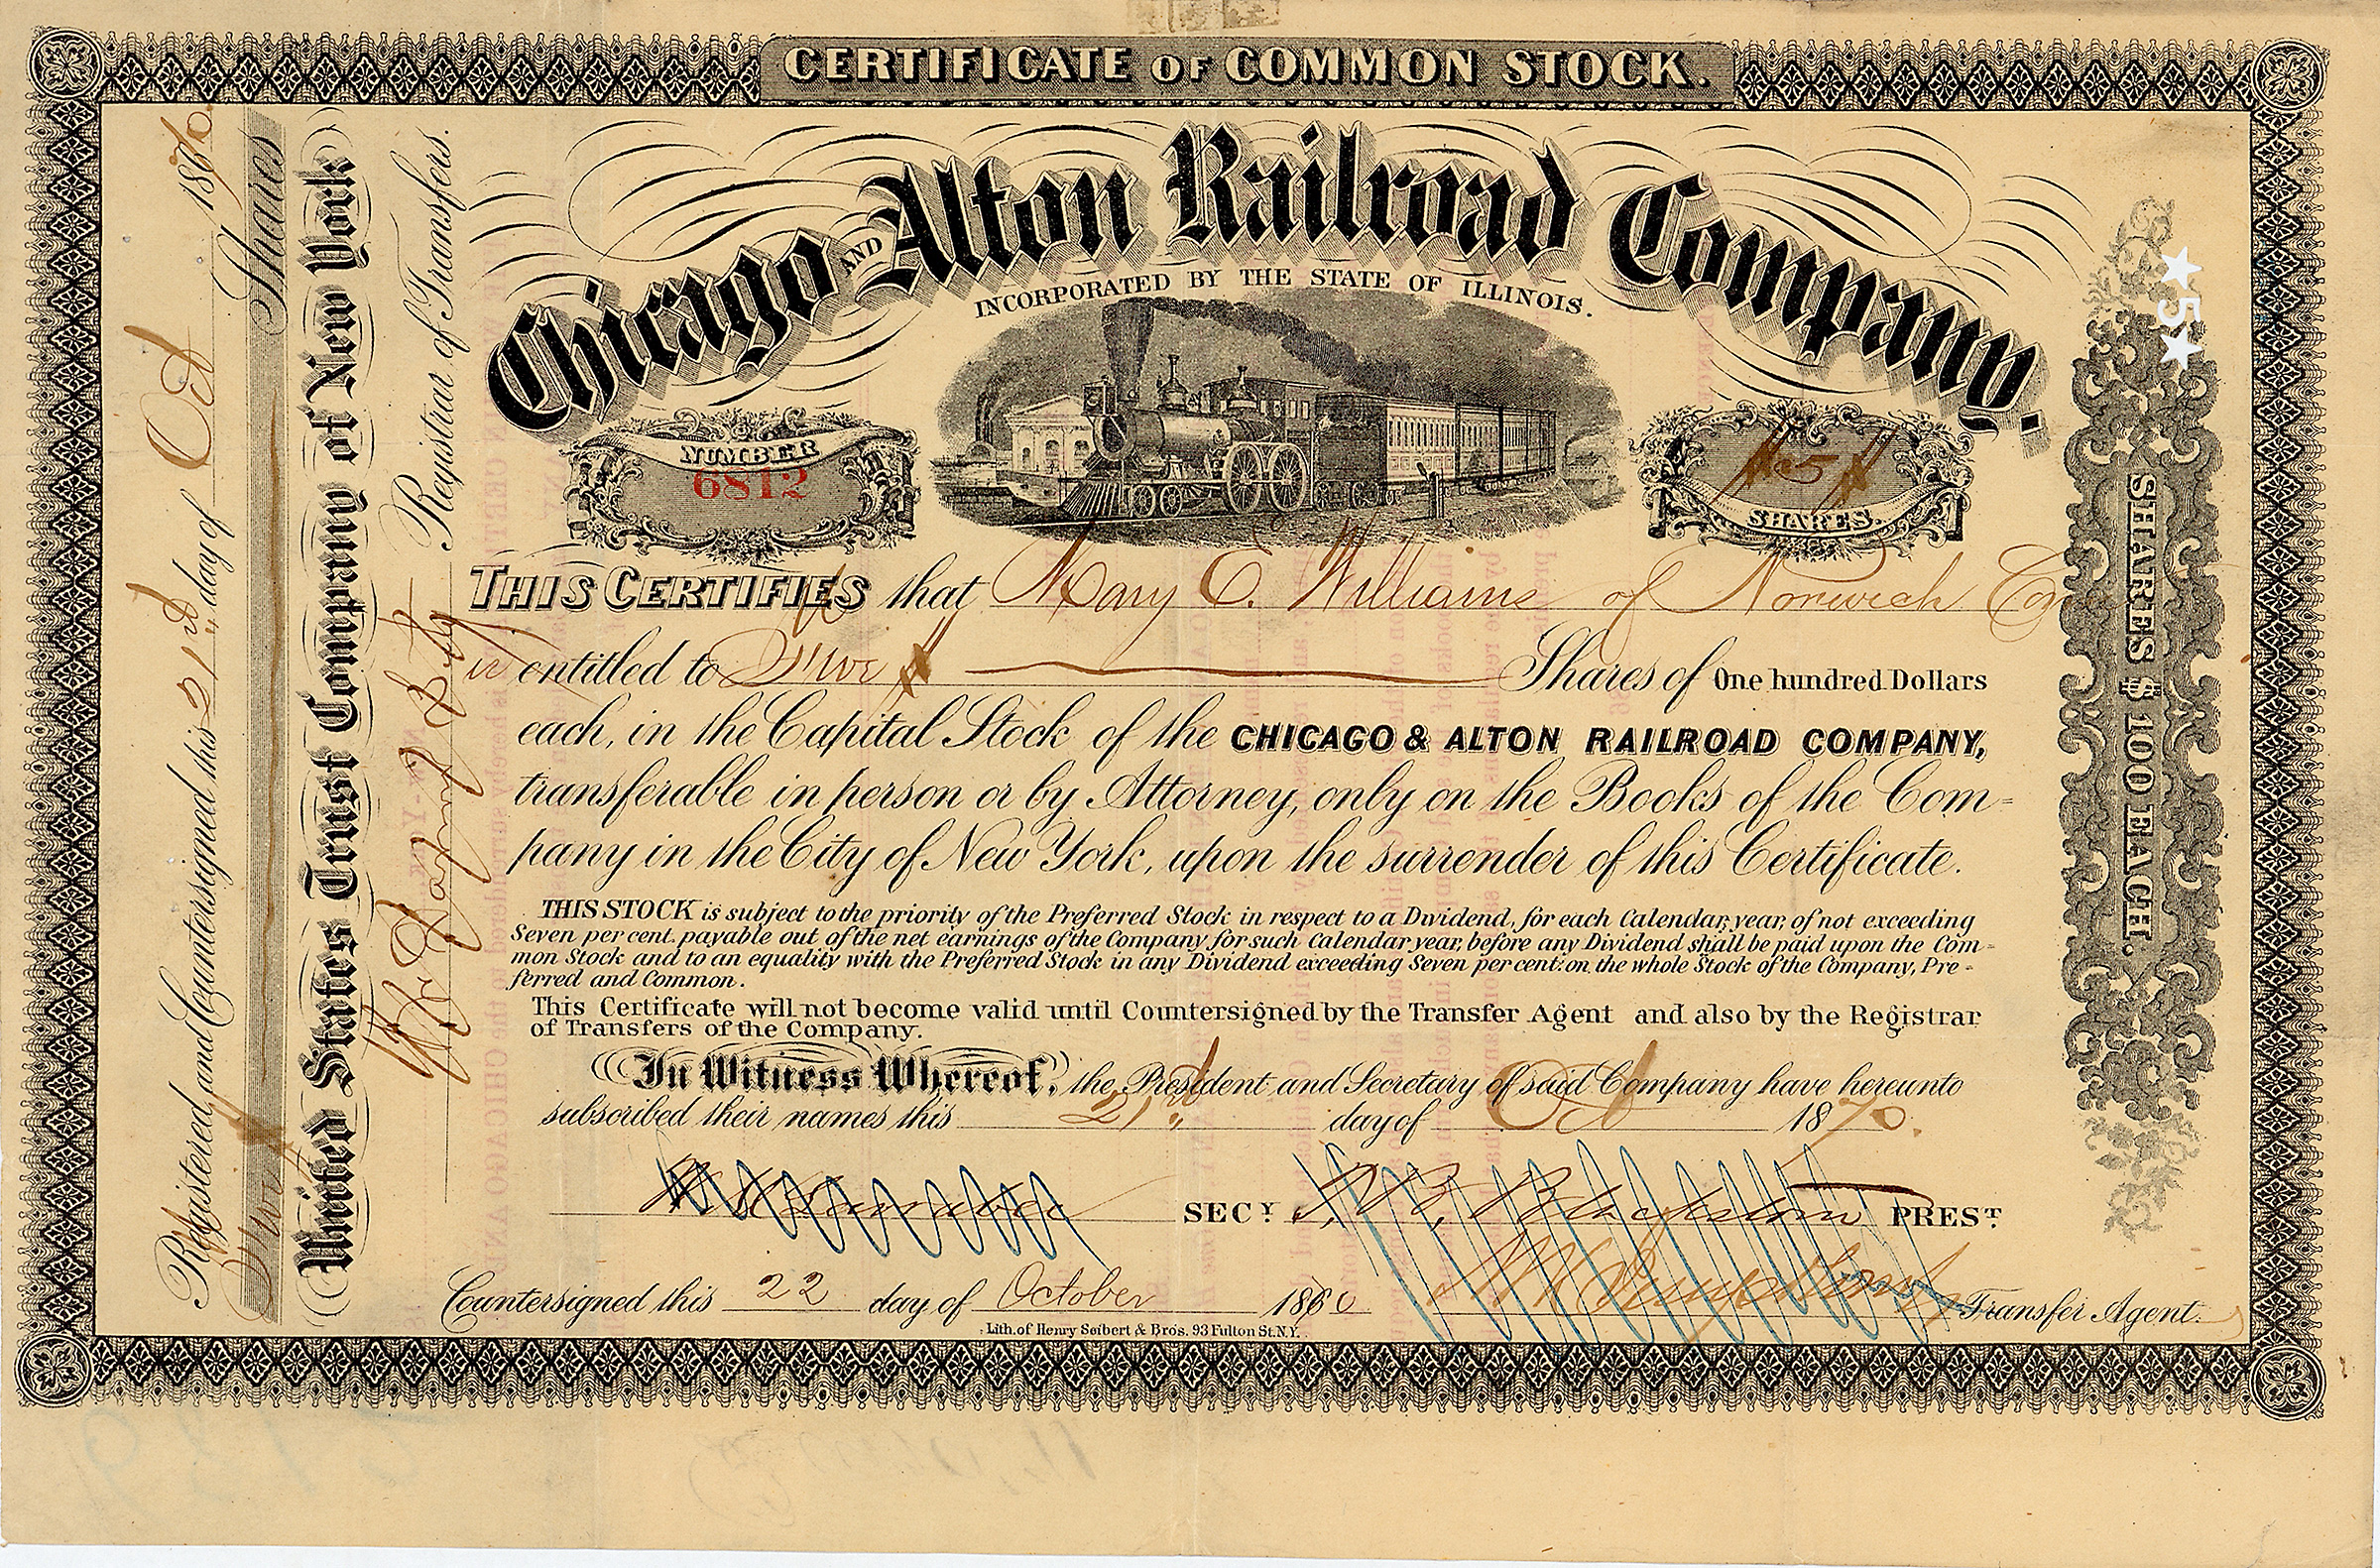 CERTIFICATE OF COMMON STOCK.
Chicago AND Alton Railroad Company.
INCORPORATED BY THE STATE OF ILLINOIS.
NUMBER
6812
5
SHARES.
THIS CERTIFIES that Mary E. Williams of Norwich
is entitled to Five Shares of One hundred Dollars
each, in the Capital Stock of the CHICAGO & ALTON RAILROAD COMPANY,
transferable in person or by Attorney, only on the Books of the Com-
pany in the City of New York, upon the surrender of this Certificate.
THIS STOCK is subject to the priority of the Preferred Stock in respect to a Dividend, for each Calendar, year, of not exceeding
Seven per cent. payable out of the net earnings of the Company for such Calendar year, before any Dividend shall be paid upon the Com-
mon Stock and to an equality with the Preferred Stock in any Dividend exceeding Seven per cent: on the whole Stock of the Company, Pre-
ferred and Common.
This Certificate will not become valid until Countersigned by the Transfer Agent and also by the Registrar
of Transfers of the Company.
In Witness Whereof, the President and Secretary of said Company have hereunto
subscribed their names this 21st day of Oct 1870.
SECY. T. B. Blackstone PREST.
Countersigned this 22 day of October 1860 Transfer Agent.
Lith. of Henry Seibert & Bros. 93 Fulton St. N.Y.
Registered, and Countersigned this 21st day of Oct 1870
Five Shares
United States Trust Company of New York
Registrar of Transfers.
SHARES $100 EACH.
★5★